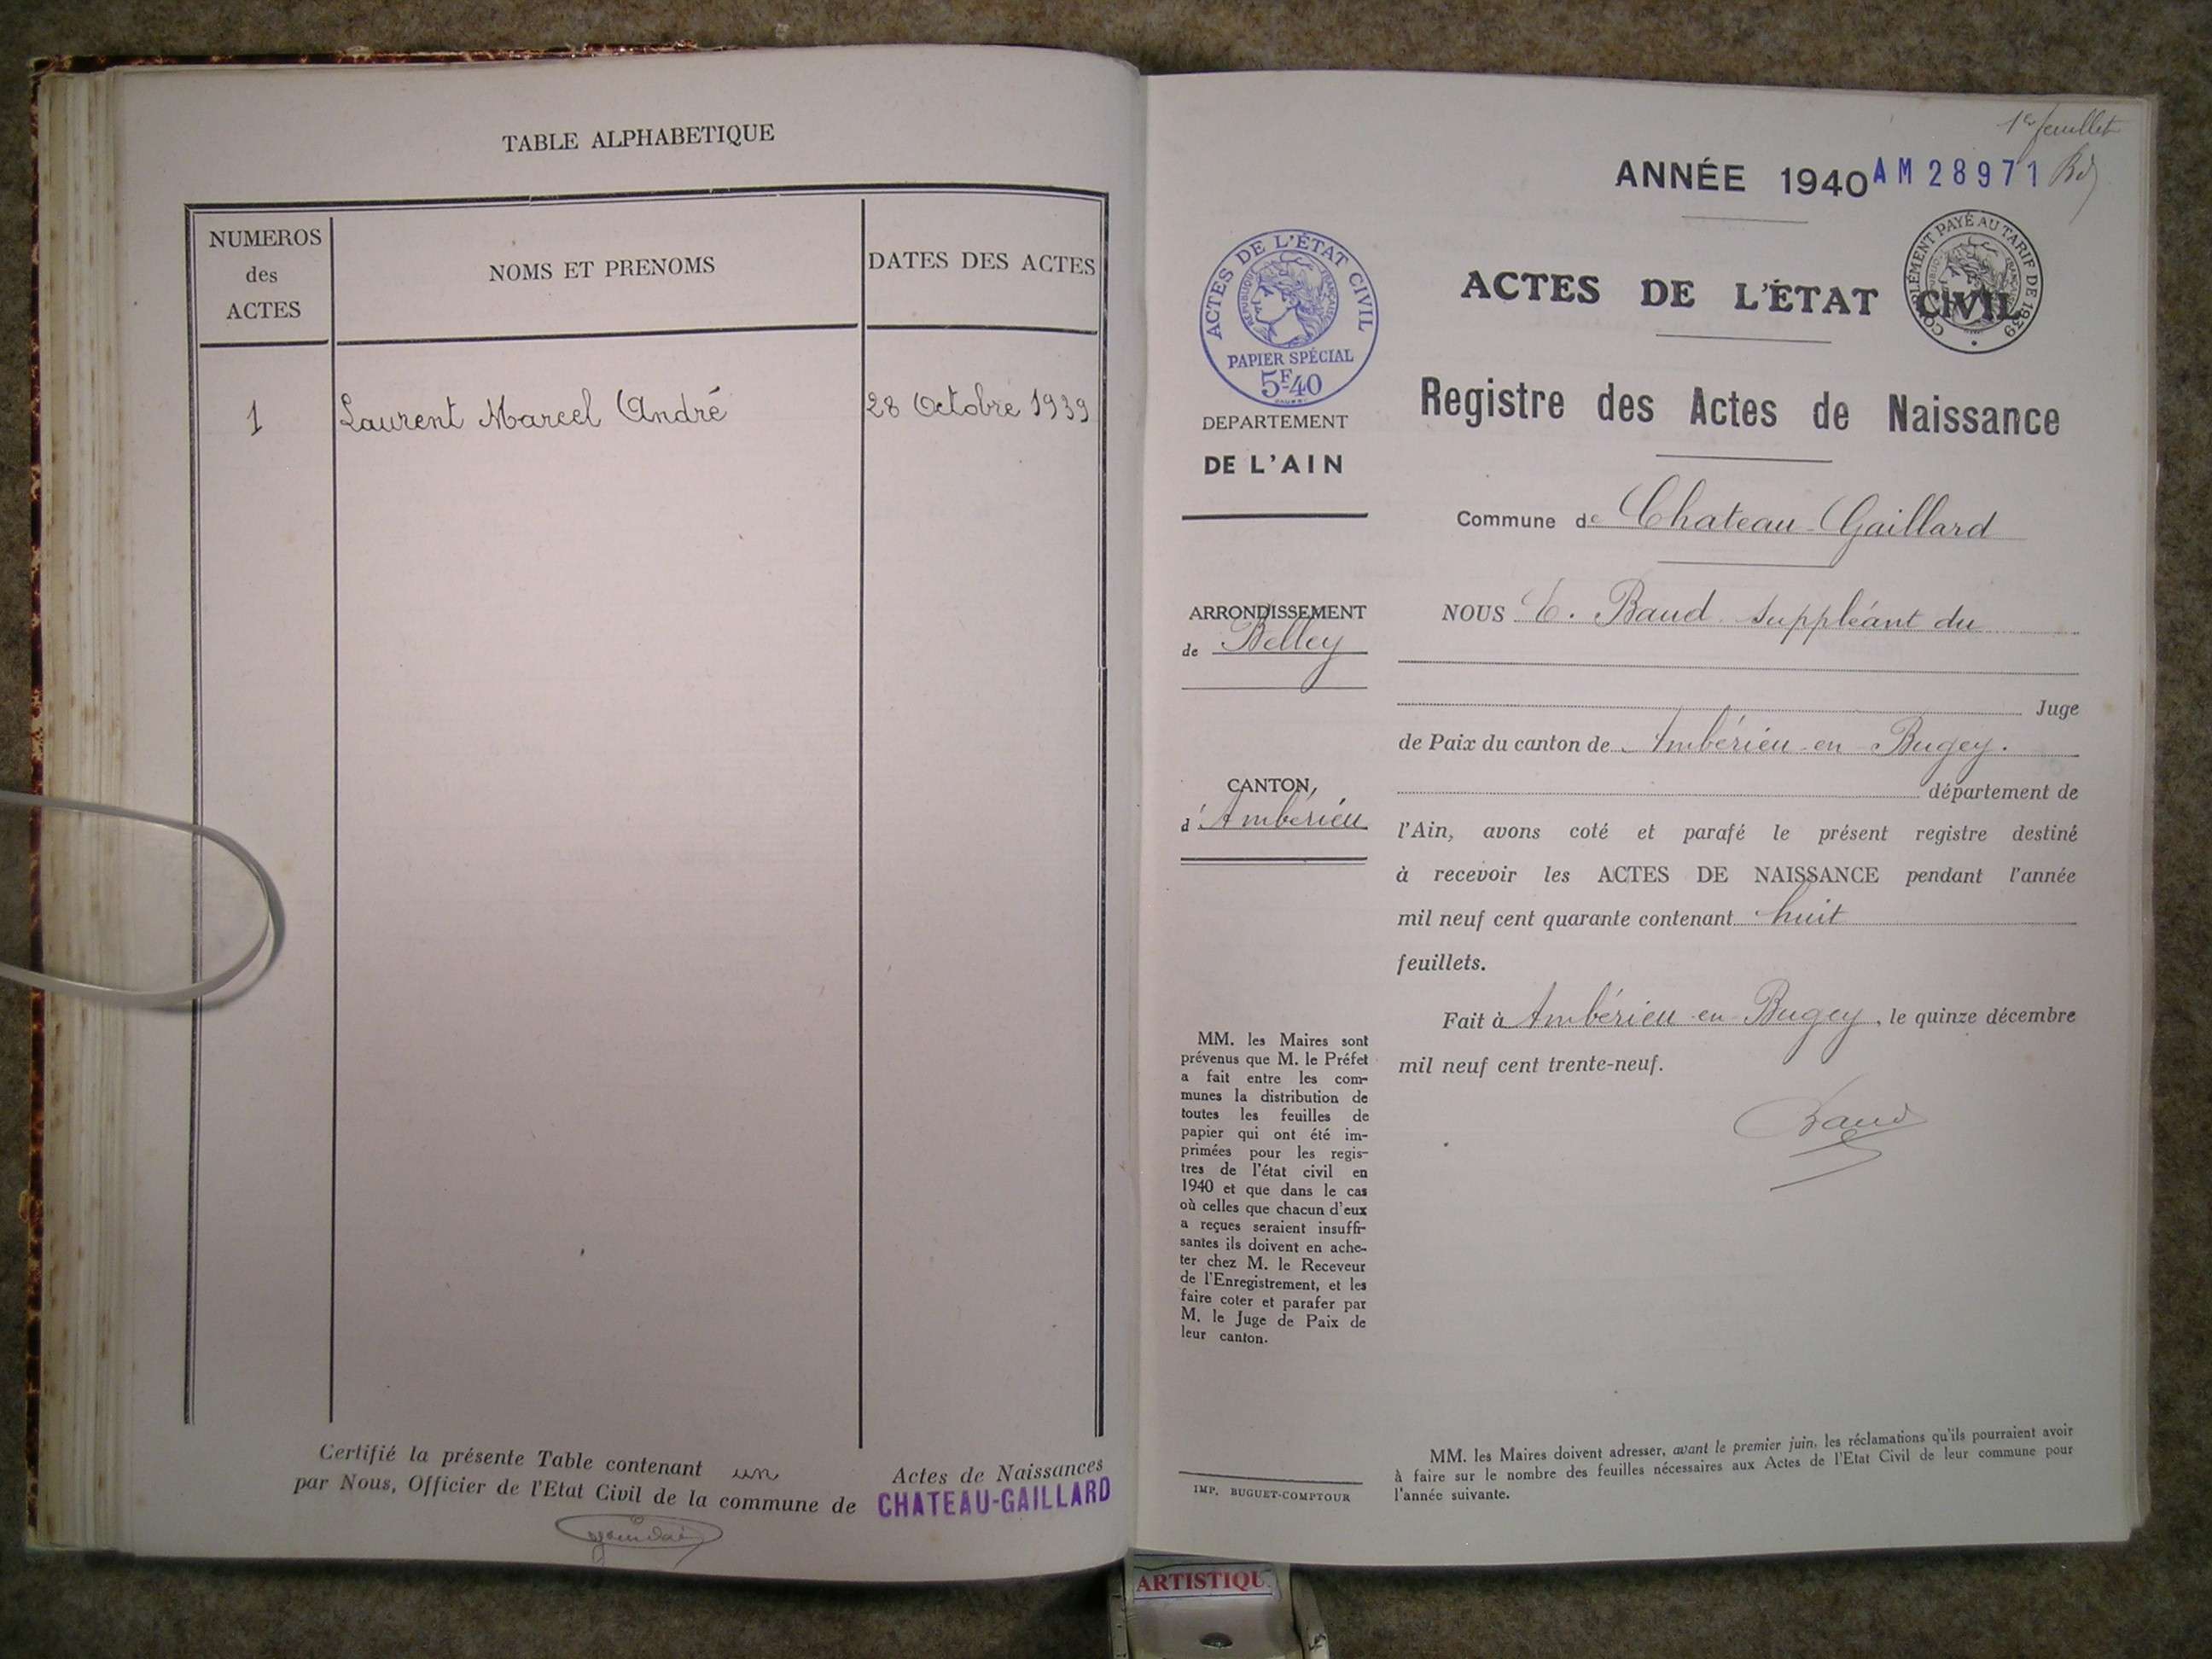 TABLE ALPHABETIQUE
NUMEROS
des
ACTES
NOMS ET PRENOMS
DATES DES ACTES
1
Laurent Marcel André
28 Octobre 1939
Certifié la présente Table contenant un Actes de Naissances
par Nous, Officier de l'Etat Civil de la commune de CHATEAU-GAILLARD
1er feuillet
ANNÉE 1940 AM 28971
ACTES DE L'ÉTAT CIVIL
RÉPUBLIQUE FRANÇAISE
PAPIER SPÉCIAL
5F40
COMPLÉMENT PAYÉ AU TARIF DE 1939
ACTES DE L'ÉTAT CIVIL
Registre des Actes de Naissance
DEPARTEMENT
DE L'AIN
Commune de Chateau-Gaillard
ARRONDISSEMENT
de Belley
CANTON
d'Ambérieu
NOUS E. Baud suppléant du
Juge
de Paix du canton de Ambérieu-en-Bugey.
département de
l'Ain, avons coté et parafé le présent registre destiné
à recevoir les ACTES DE NAISSANCE pendant l'année
mil neuf cent quarante contenant huit
feuillets.
Fait à Ambérieu-en-Bugey, le quinze décembre
mil neuf cent trente-neuf.
Baud
MM. les Maires sont
prévenus que M. le Préfet
a fait entre les com-
munes la distribution de
toutes les feuilles de
papier qui ont été im-
primées pour les regis-
tres de l'état civil en
1940 et que dans le cas
où celles que chacun d'eux
a reçues seraient insuffi-
santes ils doivent en ache-
ter chez M. le Receveur
de l'Enregistrement, et les
faire coter et parafer par
M. le Juge de Paix de
leur canton.
IMP. BUGUET-COMPTOUR
MM. les Maires doivent adresser, avant le premier juin, les réclamations qu'ils pourraient avoir
à faire sur le nombre des feuilles nécessaires aux Actes de l'Etat Civil de leur commune pour
l'année suivante.
ARTISTIQU